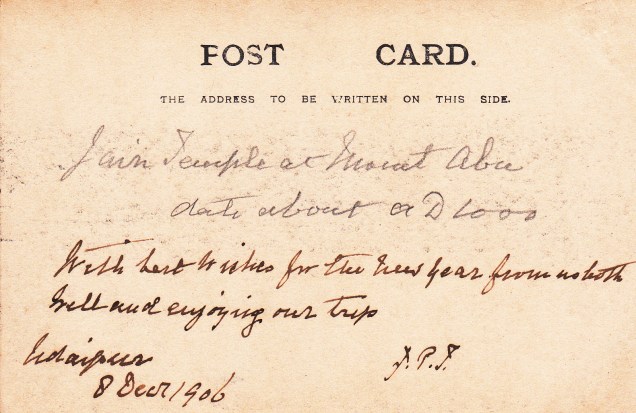 POST CARD.
THE ADDRESS TO BE WRITTEN ON THIS SIDE.
Jain Temple at Mount Abu
date about AD 1000
With best wishes for the New Year from us both
Well and enjoying our trip
Udaipur
8 Decr 1906
J.P.T.